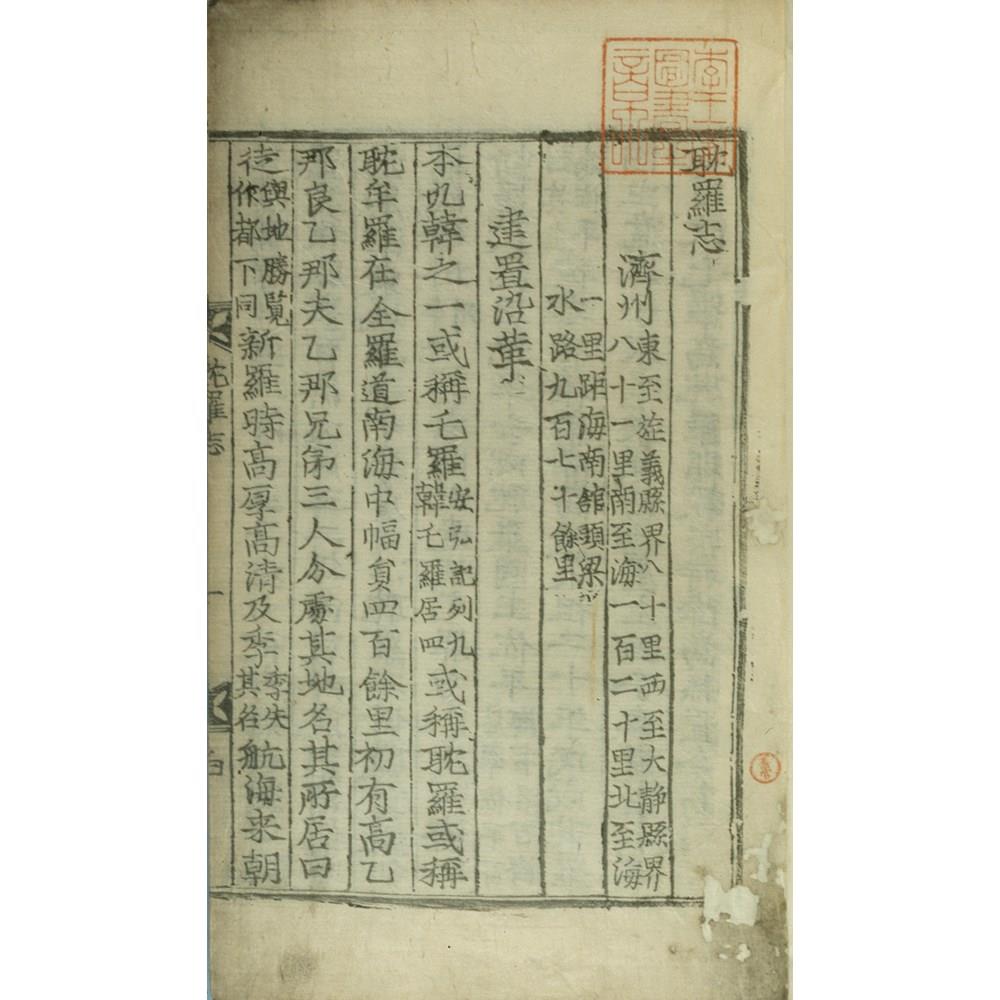 耽羅志
濟州東至㫌義縣界八十里西至大靜縣界
八十一里南至海一百二十里北至海
一里距海南舘頭梁
水路九百七十餘里
建置沿革
本九韓之一或稱乇羅
安弘記列九
韓乇羅居四
或稱耽羅或稱
耽牟羅在全羅道南海中幅員四百餘里初有高乙
那良乙那夫乙那兄弟三人分處其地名其所居曰
徒
輿地勝覧
作都下同
新羅時高厚高清及季
季失
其名
航海来朝
耽羅志
一
圖書